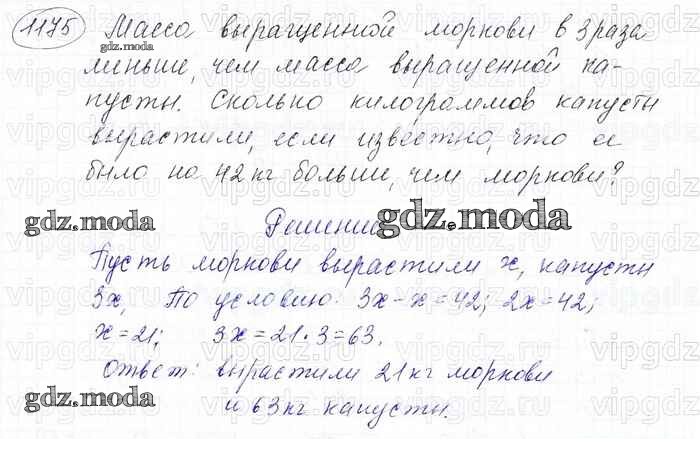 1175 Масса выращенной моркови в 3 раза
gdz.moda
меньше, чем масса выращенной ка-
пусты. Сколько килограммов капусты
вырастили, если известно, что ее
было на 42 кг больше, чем моркови?
gdz.moda Решение gdz.moda
Пусть моркови вырастили x, капусты
3x, По условию: 3x-x=42; 2x=42;
x=21; 3x=21·3=63.
Ответ: вырастили 21 кг моркови
gdz.moda и 63 кг капусты.
vipgdz.ru